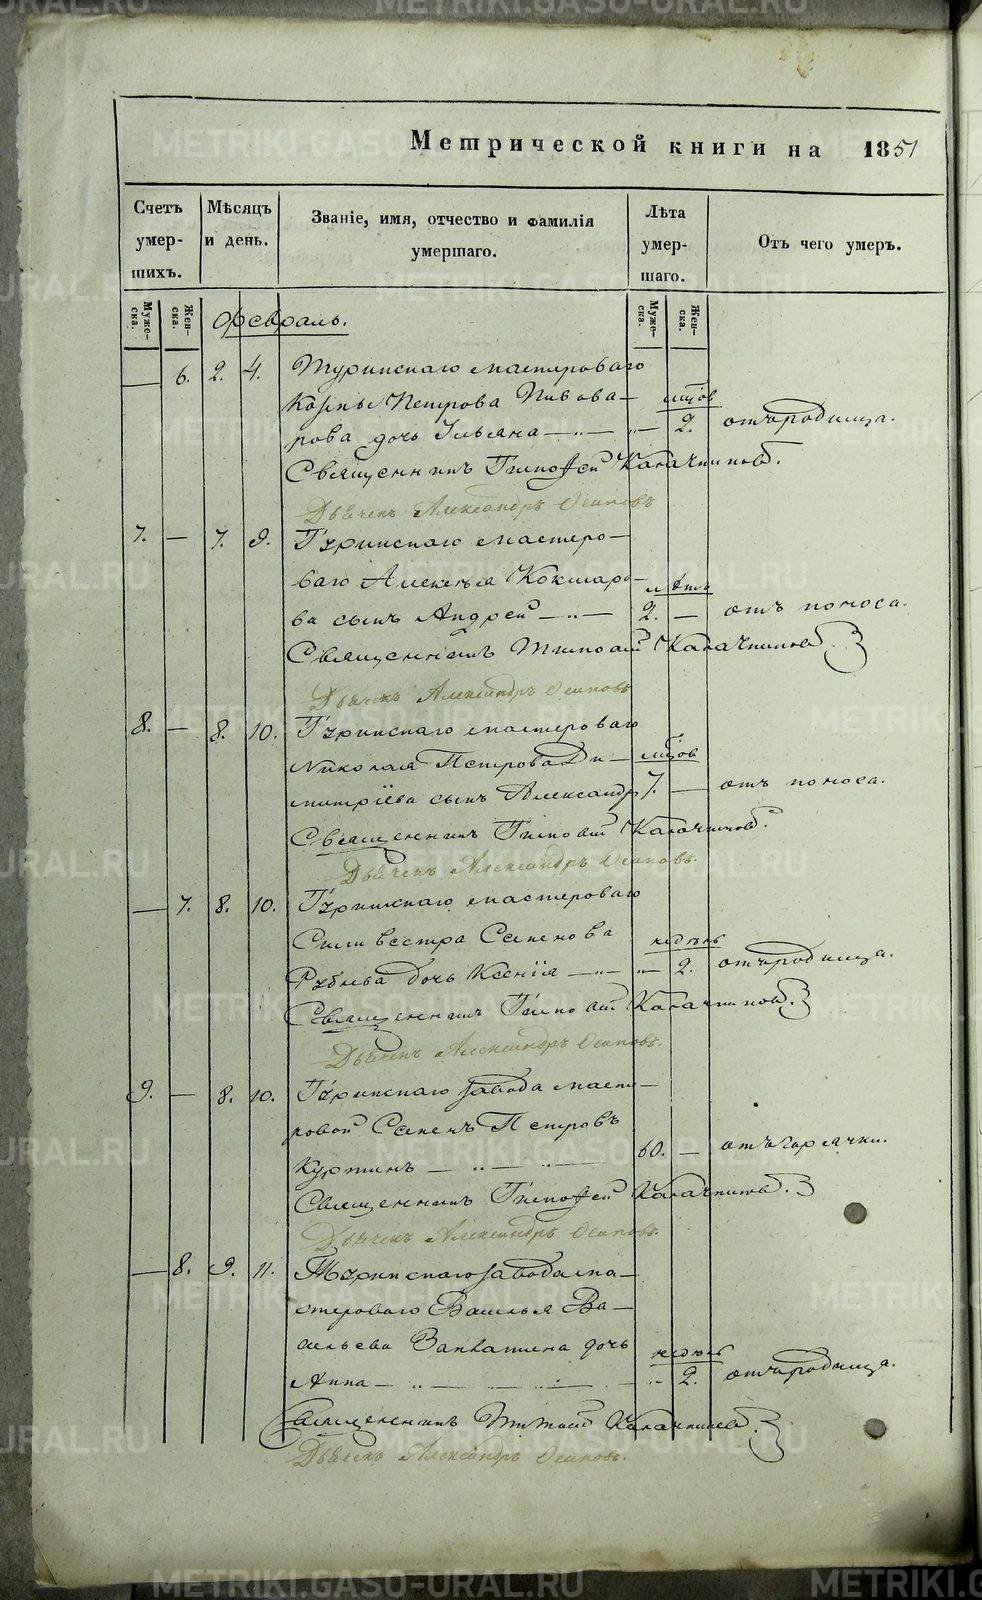 Метрической книги на 1851
Счетъ умер- шихъ.
Мѣсяцъ и день.
Званіе, имя, отчество и фамилія умершаго.
Лѣта умер- шаго.
Отъ чего умеръ.
Муже- ска.
Жен- ска.
Февраль.
Муже- ска.
Жен- ска.
— 6. 2. 4. Туринскаго мастероваго
Петрова Пивова-
рова дочь Ульяна — „ — „ — 2. отъ родимца.
Священникъ Тимофей Калачниковъ.
Дьячекъ Александръ Осиповъ
7. — 7. 9. Туринскаго мастеро-
ваго Алексѣя Кокшаро- лѣта
ва сынъ Андрей — „ — 2. — отъ поноса.
Священникъ Тимофей Калачниковъ.
Дьячекъ Александръ Осиповъ
8. — 8. 10. Туринскаго мастероваго
Николая Петрова Ди-
митріева сынъ Александръ 7. — отъ поноса.
Священникъ Тимофей Калачниковъ.
Дьячекъ Александръ Осиповъ.
— 7. 8. 10. Туринскаго мастероваго
Сильвестра Семенова недѣль
дочь Ксенія — „ — „ — 2. отъ родимца.
Священникъ Тимофей Калачниковъ.
Дьячекъ Александръ Осиповъ.
9. — 8. 10. Туринскаго завода масте-
ровой Семенъ Петровъ
— „ — „ — 60. — отъ горячки.
Священникъ Тимофей Калачниковъ.
Дьячекъ Александръ Осиповъ.
— 8. 9. 11. Туринскаго завода ма-
стероваго Василья Ва-
сильева дочь недѣль
Анна — „ — „ — „ 2. отъ родимца.
Священникъ Тимофей Калачниковъ.
Дьячекъ Александръ Осиповъ.
METRIKI.GASO-URAL.RU